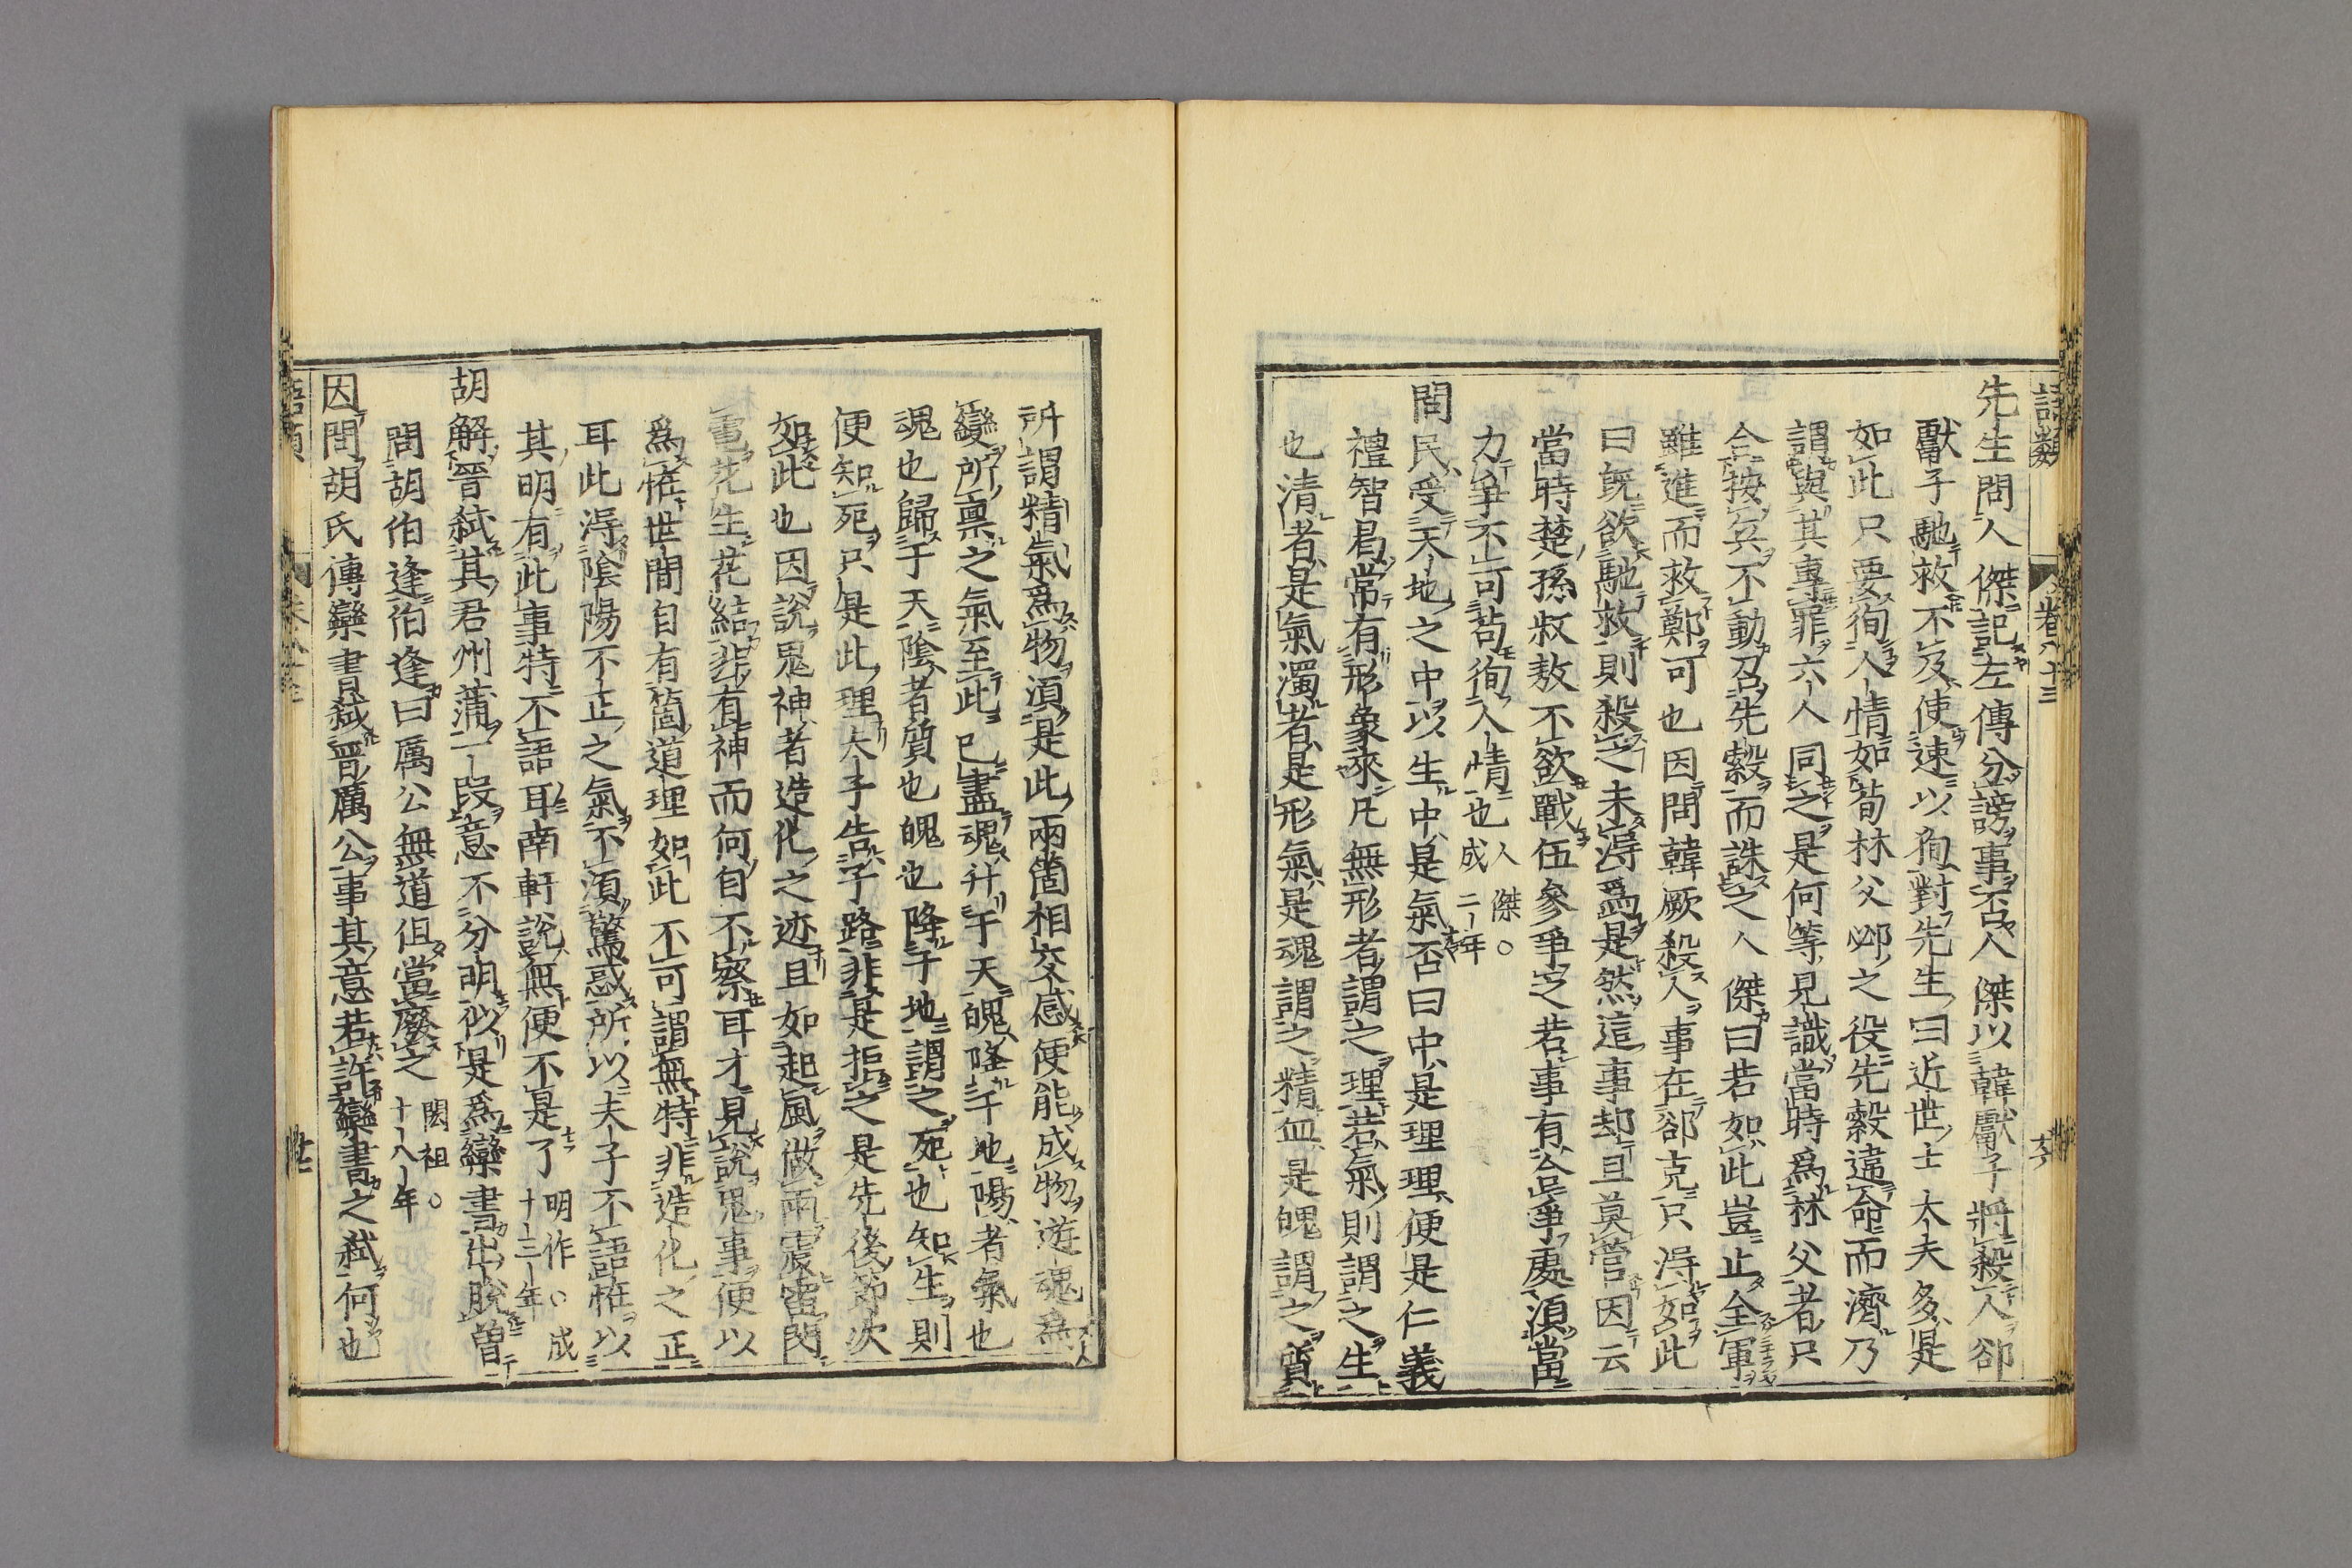 語類
卷八十三
先生問人傑記左傳分謗事否人傑以韓獻子將殺人郤
獻子馳救不及使速以徇對先生曰近世士大夫多是
如此只要徇人情如荀林父邲之役先縠違命而濟乃
謂與其專罪六人同之是何等見識當時為林父者只
合按兵不動召先縠而誅之人傑曰若如此豈止全軍
雖進而救鄭可也因問韓厥殺人事在郤克只得如此
曰既欲馳救則殺之未得為是然這事却且莫管因云
當時楚孫叔敖不欲戰伍參爭之若事有合爭處須當
力爭不可苟徇人情也人傑○
成二年
問民受天地之中以生中是氣否曰中是理理便是仁義
禮智曷常有形象來凡無形者謂之理若氣則謂之生
也清者是氣濁者是形氣是魂謂之精血是魄謂之質
所謂精氣為物須是此兩箇相交感便能成物遊魂為
變所稟之氣至此已盡魂升于天魄降于地陽者氣也
魂也歸于天陰者質也魄也降于地謂之死也知生則
便知死只是此理夫子告子路非是拒之是先後節次
如此也因說鬼神者造化之迹且如起風做雨震雷閃
電花生花結非有神而何自不察耳才見說鬼事便以
為怪世間自有箇道理如此不可謂無特非造化之正
耳此得陰陽不正之氣不須驚惑所以夫子不語怪以
其明有此事特不語耳南軒說無便不是了明作○成
十三年
胡解晉弑其君州蒲一段意不分明似是為欒書出脫曾
問胡伯逢伯逢曰厲公無道但當廢之閎祖○
十八年
因問胡氏傳欒書弑晉厲公事其意若許欒書之弑何也